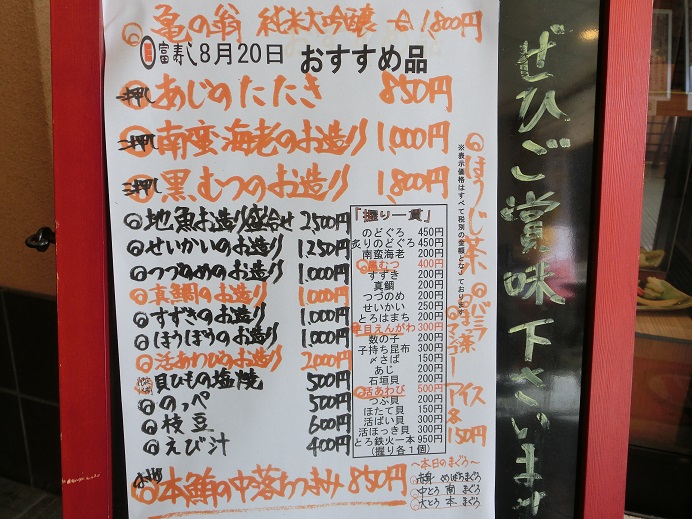 亀の翁 純米大吟醸 一合 1,800円
富寿し 8月20日 おすすめ品
一押し あじのたたき 850円
二押し 南蛮海老のお造り 1,000円
三押し 黒むつのお造り 1,800円
地魚お造り盛合せ 2500円
せいかいのお造り 1250円
つづのめのお造り 1,000円
真鯛のお造り 1,000円
すずきのお造り 1,000円
ほうぼうのお造り 1,000円
活あわびのお造り 2000円
貝ひもの塩焼 500円
のっぺ 500円
枝豆 600円
えび汁 400円
本鮪の中落ちつまみ 850円
「握り一貫」
のどぐろ 450円
炙りのどぐろ 450円
南蛮海老 200円
黒むつ 400円
すずき 200円
真鯛 200円
つづのめ 200円
せいかい 250円
とろはまち 200円
縁目えんがわ 300円
数の子 200円
子持ち昆布 300円
〆さば 150円
あじ 200円
石垣貝 200円
活あわび 500円
つぶ貝 200円
ほたて貝 150円
活ばい貝 300円
活ほっき貝 300円
とろ鉄火一本 950円
(握り各1個)
※表示価格はすべて税別の金額となっております。
ほうじ茶
バニラ
抹茶
マンゴー
アイス
各150円
～本日のまぐろ～
赤身 めばちまぐろ
中とろ 南まぐろ
大とろ 本まぐろ
ぜひご賞味下さいませ